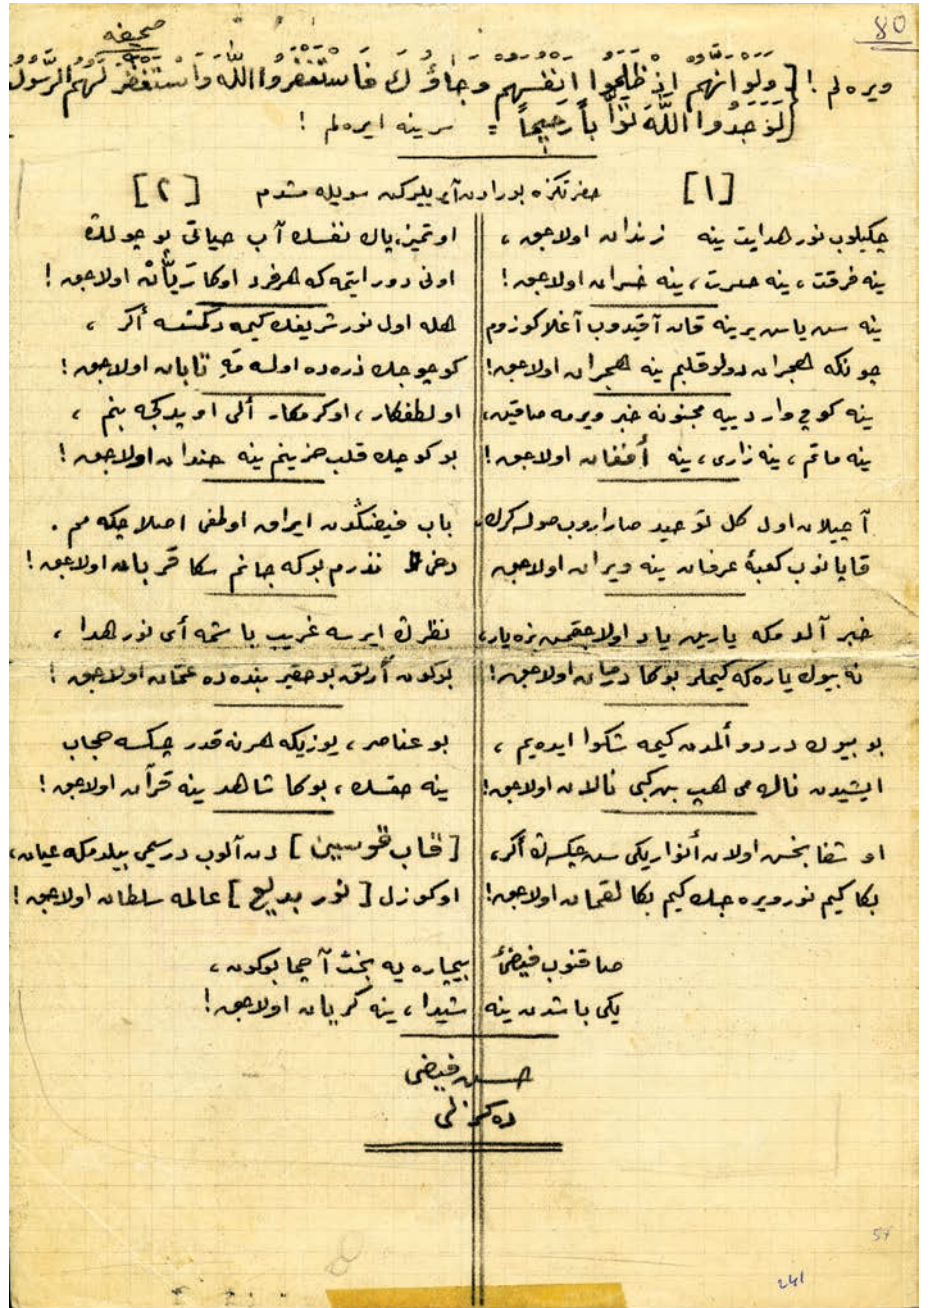 صحيفه
80
ويره لم ! [ وَلَوْ اَنَّهُمْ اِذْ ظَلَمُوا اَنْفُسَهُمْ وَجَاؤُكَ فَاسْتَغْفَرُوا اللّٰهَ وَاسْتَغْفَرَ لَهُمُ الرَّسُولُ
لَوَجَدُوا اللّٰهَ تَوَّاباً رَحِيماً = سرينه ايره لم !
حضرتكزه بورادن آيريليركن سويله مشدم
[١]
چكيلوب نور هدايت ينه زندان اولاجق ،
ينه فرقت ، ينه حسرت ، ينه خسران اولاجق !
ينه سن ياس يرينه قان آقيدوب آغلا كوزوم
چونكه هجران دولو قلبم ينه هجران اولاجق !
ينه كوچ وار دييه مجنونه خبر ويرمه صاقين ،
ينه ماتم ، ينه زارى ، ينه أفغان اولاجق !
آچيلان اول كل توحيد صاراروب صولسه كرك
قاپانوب كعبۀ عرفان ينه ويران اولاجق
خبر آلدمكه يارين ياد اولاجقمس بزه يار ،
نه بيوك ياره كه كيملر بوكا درمان اولاجق !
بو بيوك درد و ألمدن كيمه شكوا ايده يم ،
ايشيدن ناله مى هپ بن كبى نالان اولاجق !
او شفا بخش اولان أنواريكى سن چكسه ڭ أگر ،
بكا كيم نور ويره جك كيم بكا لقمان اولاجق !
[٢]
او تميز ، پاك نفسك آب حياتى بو چولڭ
اونى دور ايتمه كه هر فرد اوكا رَيَّانْ اولاجق !
هله اول نور شريفك كيمه دكمشسه أگر ،
كوچوجك ذره ده اولسه مَهِ تابان اولاجق !
او لطفكار ، او كرمكار ألى اوپدكجه بنم ،
بو كوچك قلب حزينم ينه خندان اولاجق !
باب فيضڭدن ايراق اولمغى اصلا چكه مم .
دخى نذرم بو كه جانم سكا قربان اولاجق !
نظرڭ ايرسه غريب باشمه أى نور هدا ،
بوكون أرلق بو حقير بنده ده عمان اولاجق !
بو عناصر ، يوزيكه هر نه قدر چكسه حجاب
ينه حقسك ، بوكا شاهد ينه قرآن اولاجق !
[ قاب قوسين ] دن آلوب درسمى بيلدمكه عيان ،
او كوزل [ نور بديع ] عالمه سلطان اولاجق !
صاقنوب فيضئ بيچاره يه بخت آچما بوكون ،
يكى باشدن ينه شيدا ، ينه كريان اولاجق !
حسن فيضى
دكزلى
57
241